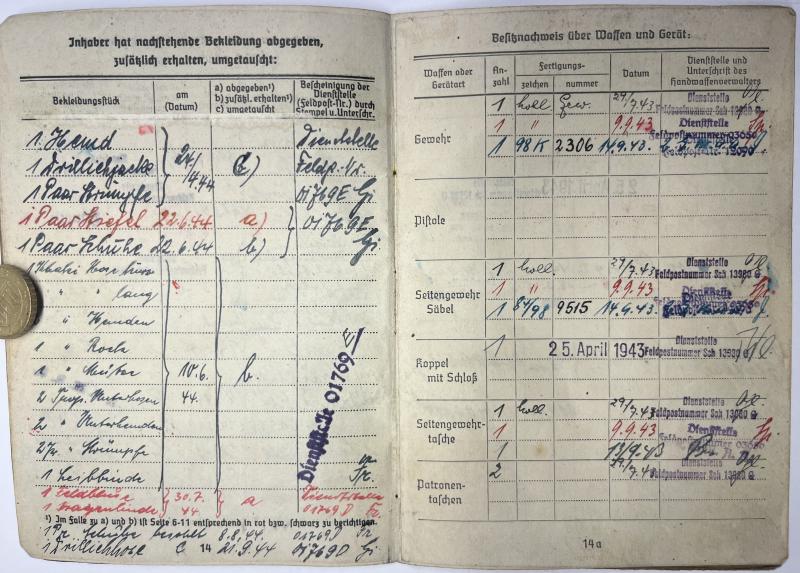 Inhaber hat nachstehende Bekleidung abgegeben,
zusätzlich erhalten, umgetauscht:
Bekleidungsstück
am
(Datum)
a) abgegeben¹)
b) zusätzl. erhalten¹)
c) umgetauscht
Bescheinigung der
Dienststelle
(Feldpost-Nr.) durch
Stempel u. Unterschr.
1 Hemd
1 Drillichjacke
1 Paar Strümpfe
24/
4.44
c)
Dienststelle
Feldp.-Nr.
01769E Gi
1 Paar Stiefel 22.6.44 a)
1 Paar Schuhe 22.6.44 b)
01769E
Gi
1 Khaki Hose kurz
" " lang
" Hemden
1 " Rock
1 " Mütze
2 Trop. Unterhosen
2 " Unterhemden
2 P. " Strümpfe
1 Leibbinde
10.6.
44.
b.
Dienststelle 01769 E
1 Feldbluse
1 Kragenbinde
30.7.
44
a
Dienststelle
01769 D
¹) Im Falle zu a) und b) ist Seite 6-11 entsprechend in rot bzw. schwarz zu berichtigen.
1 Pr. Schuhe besohlt 8.8.44. 01769D
1 Drillichhose C 14 21.9.44 01769D Gi
Besitznachweis über Waffen und Gerät:
Waffen oder
Gerätart
An-
zahl
Fertigungs-
zeichen
nummer
Datum
Dienststelle und
Unterschrift des
Handwaffenverwalters
Gewehr
1 holl. Gew. 29/7.43 Dienststelle
Feldpostnummer Sch 13980 G
1 " 9.9.43 Dienststelle
Feldpostnummer 03650
1 98K 2306 14.9.43.
Pistole
Seitengewehr
Säbel
1 holl. 29/7.43 Dienststelle
Feldpostnummer Sch 13980 G
1 " 9.9.43 Dienststelle
1 84/98 9515 14.9.43
Koppel
mit Schloß
1 25. April 1943 Dienststelle
Feldpostnummer Sch 13980 G
Seitengewehr-
tasche
1 holl. 29/7.43 Dienststelle
Feldpostnummer Sch 13980 G
1 9.9.43 Dienststelle
Feldpostnummer 03650
1 13/9.43
Patronen-
taschen
2 29/7.43 Dienststelle
Feldpostnummer Sch 13980 G
14a